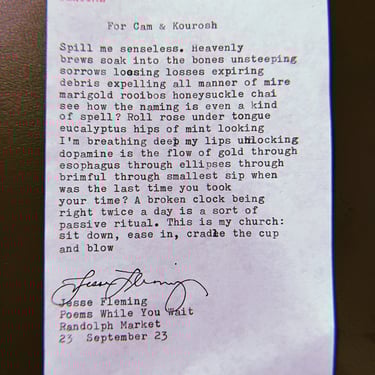 For Cam & Kourosh
Spill me senseless. Heavenly
brews soak into the bones unsteeping
sorrows loosing losses expiring
debris expelling all manner of mire
marigold rooibos honeysuckle chai
see how the naming is even a kind
of spell? Roll rose under tongue
eucalyptus hips of mint looking
I'm breathing deep my lips unlocking
dopamine is the flow of gold through
esophagus through ellipses through
brimful through smallest sip when
was the last time you took
your time? A broken clock being
right twice a day is a sort of
passive ritual. This is my church:
sit down, ease in, cradle the cup
and blow
Jesse Fleming
Jesse Fleming
Poems While You Wait
Randolph Market
23 September 23